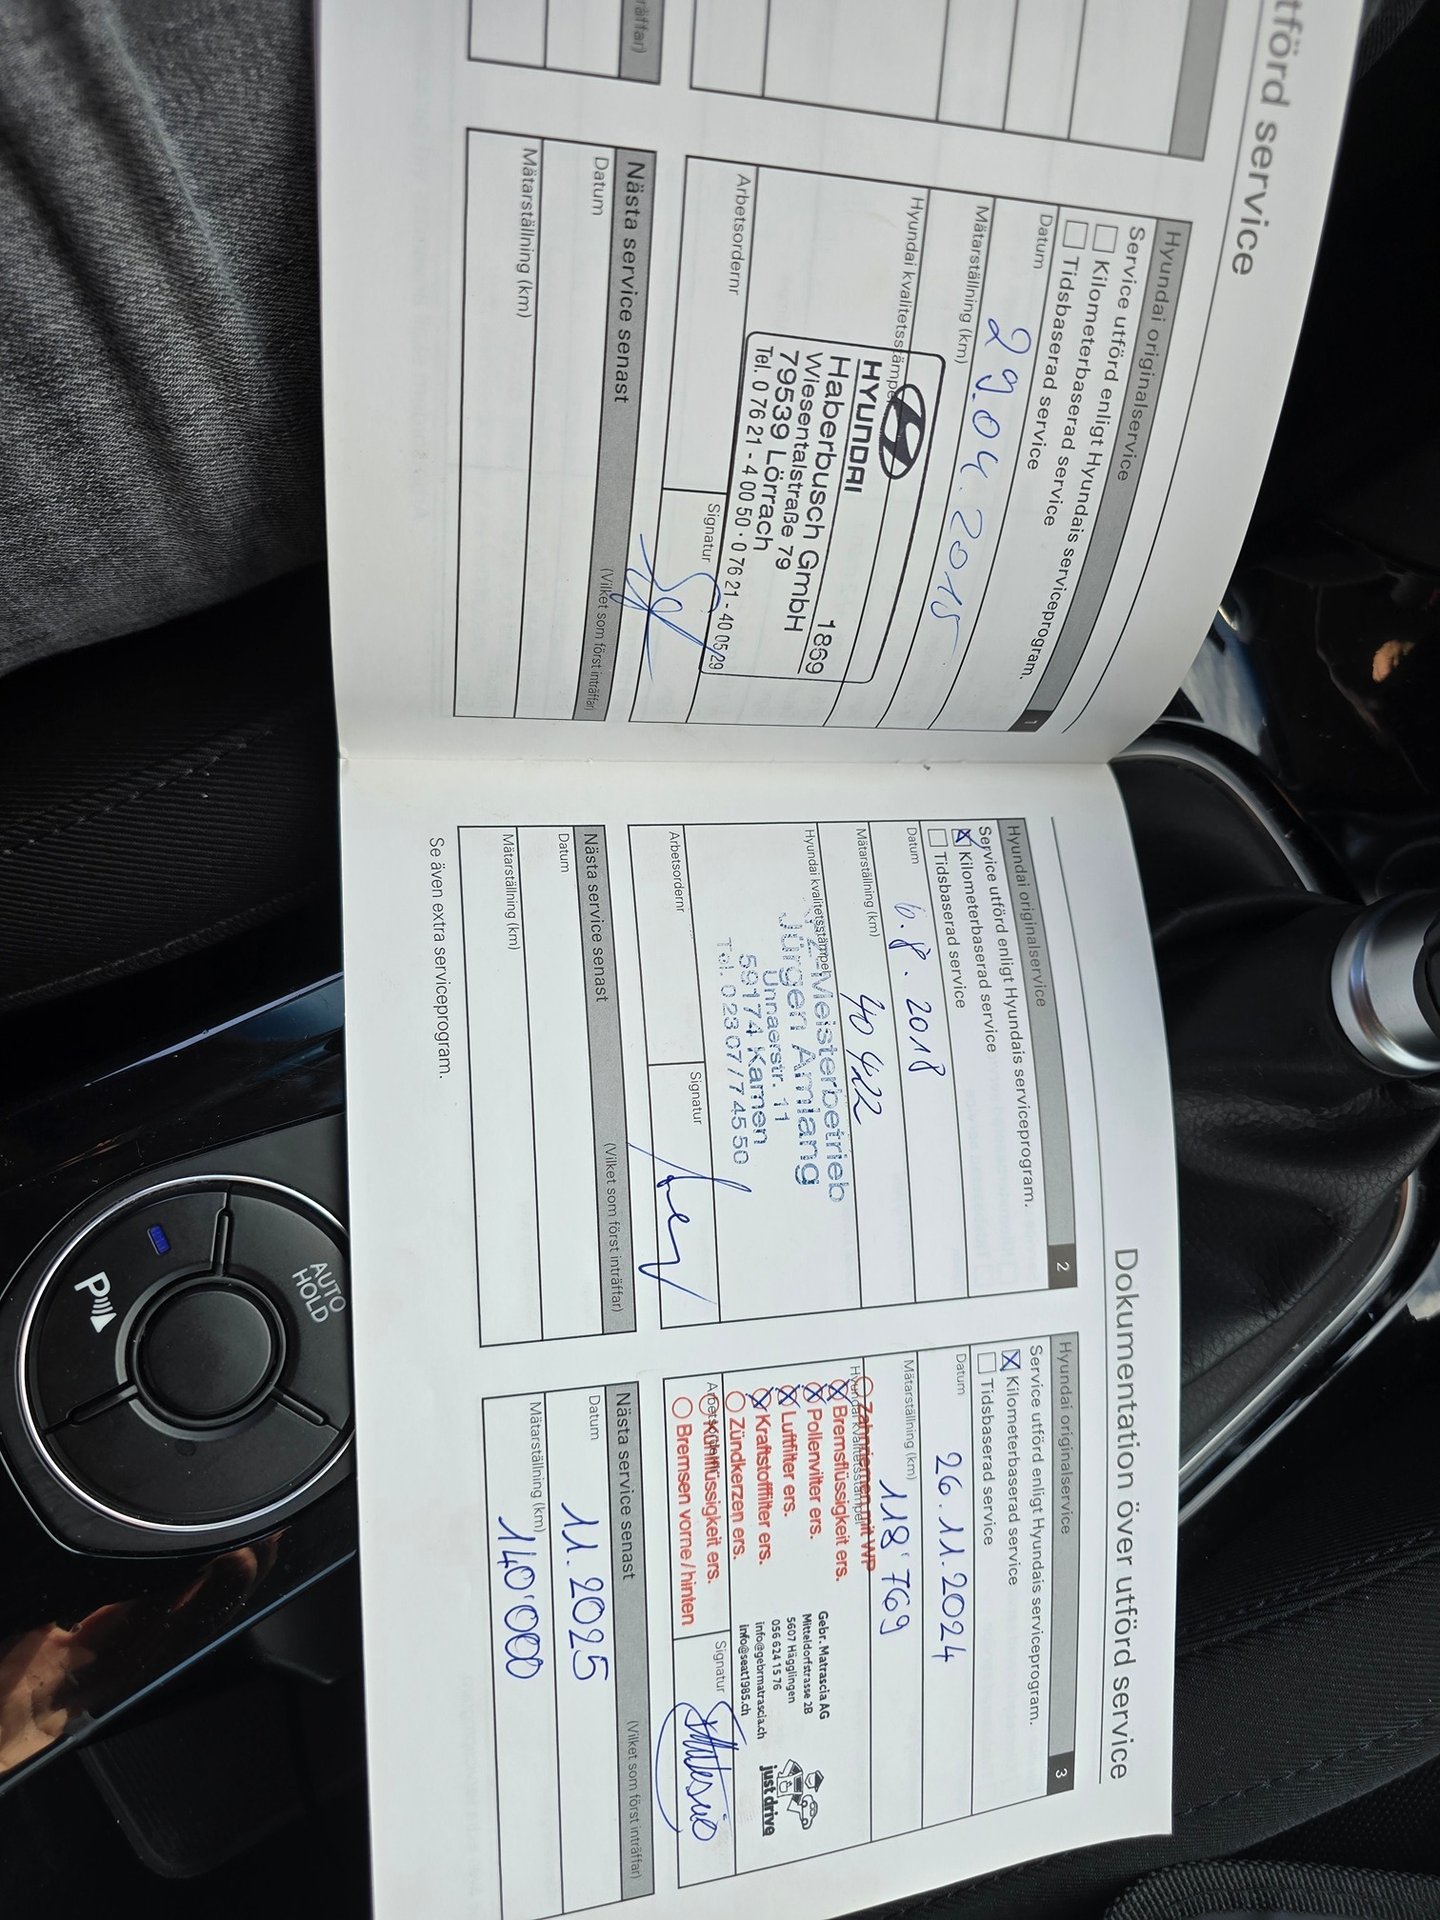 tförd service
räffar)
Hyundai originalservice
1
Service utförd enligt Hyundais serviceprogram.
Kilometerbaserad service
Tidsbaserad service
Datum
29.04.2015
Mätarställning (km)
Hyundai kvalitetsstämpel
HYUNDAI
1869
Haberbusch GmbH
Wiesentalstraße 79
79539 Lörrach
Tel. 0 76 21 - 4 00 50 · 0 76 21 - 40 05 29
Arbetsordernr
Signatur
Nästa service senast
(Vilket som först inträffar)
Datum
Mätarställning (km)
Dokumentation över utförd service
Hyundai originalservice
2
Service utförd enligt Hyundais serviceprogram.
X Kilometerbaserad service
Tidsbaserad service
Datum
6.8.2018
Mätarställning (km)
40 422
Hyundai kvalitetsstämpel
Meisterbetrieb
Jürgen Amlang
Unnaerstr. 11
59174 Kamen
Tel. 02307/74550
Arbetsordernr
Signatur
Nästa service senast
(Vilket som först inträffar)
Datum
Mätarställning (km)
Se även extra serviceprogram.
Hyundai originalservice
3
Service utförd enligt Hyundais serviceprogram.
X Kilometerbaserad service
Tidsbaserad service
Datum
26.11.2024
Mätarställning (km)
118'769
Hyundai kvalitetsstämpel
Zahnriemen mit WP
X Bremsflüssigkeit ers.
X Pollenvilter ers.
X Luftfilter ers.
X Kraftstofffilter ers.
Zündkerzen ers.
Kühlflüssigkeit ers.
Bremsen vorne/hinten
Gebr. Matrascia AG
Mitteldorfstrasse 2B
5607 Hägglingen
056 624 15 76
info@gebrmatrascia.ch
info@seat1985.ch
just drive
Arbetsordernr
Signatur
Nästa service senast
(Vilket som först inträffar)
Datum
11.2025
Mätarställning (km)
140'000
AUTO
HOLD
P